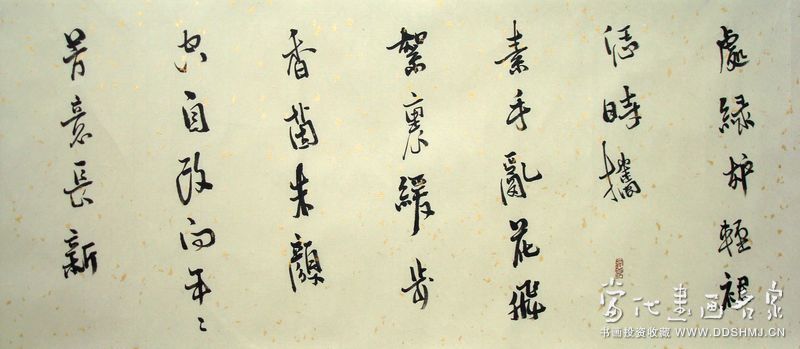 處緑妒輕裙
恁時攜
素手亂花飛
絮裏緩步
香茵朱顏
空自改向年〻
芳意長新
当代书画名家
书画投资收藏 WWW.DDSHMJ.CN